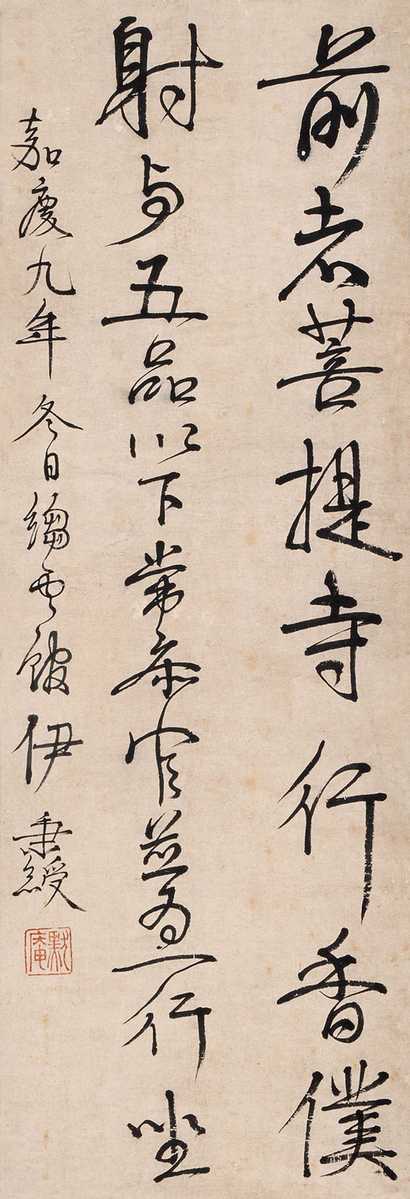 前者菩提寺行香僕
射与五品以下常参官並为一行坐
嘉慶九年冬日縐雲館伊秉綬
默庵